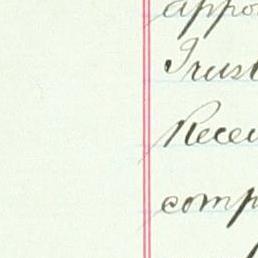 appo
Trust
Recei
comp